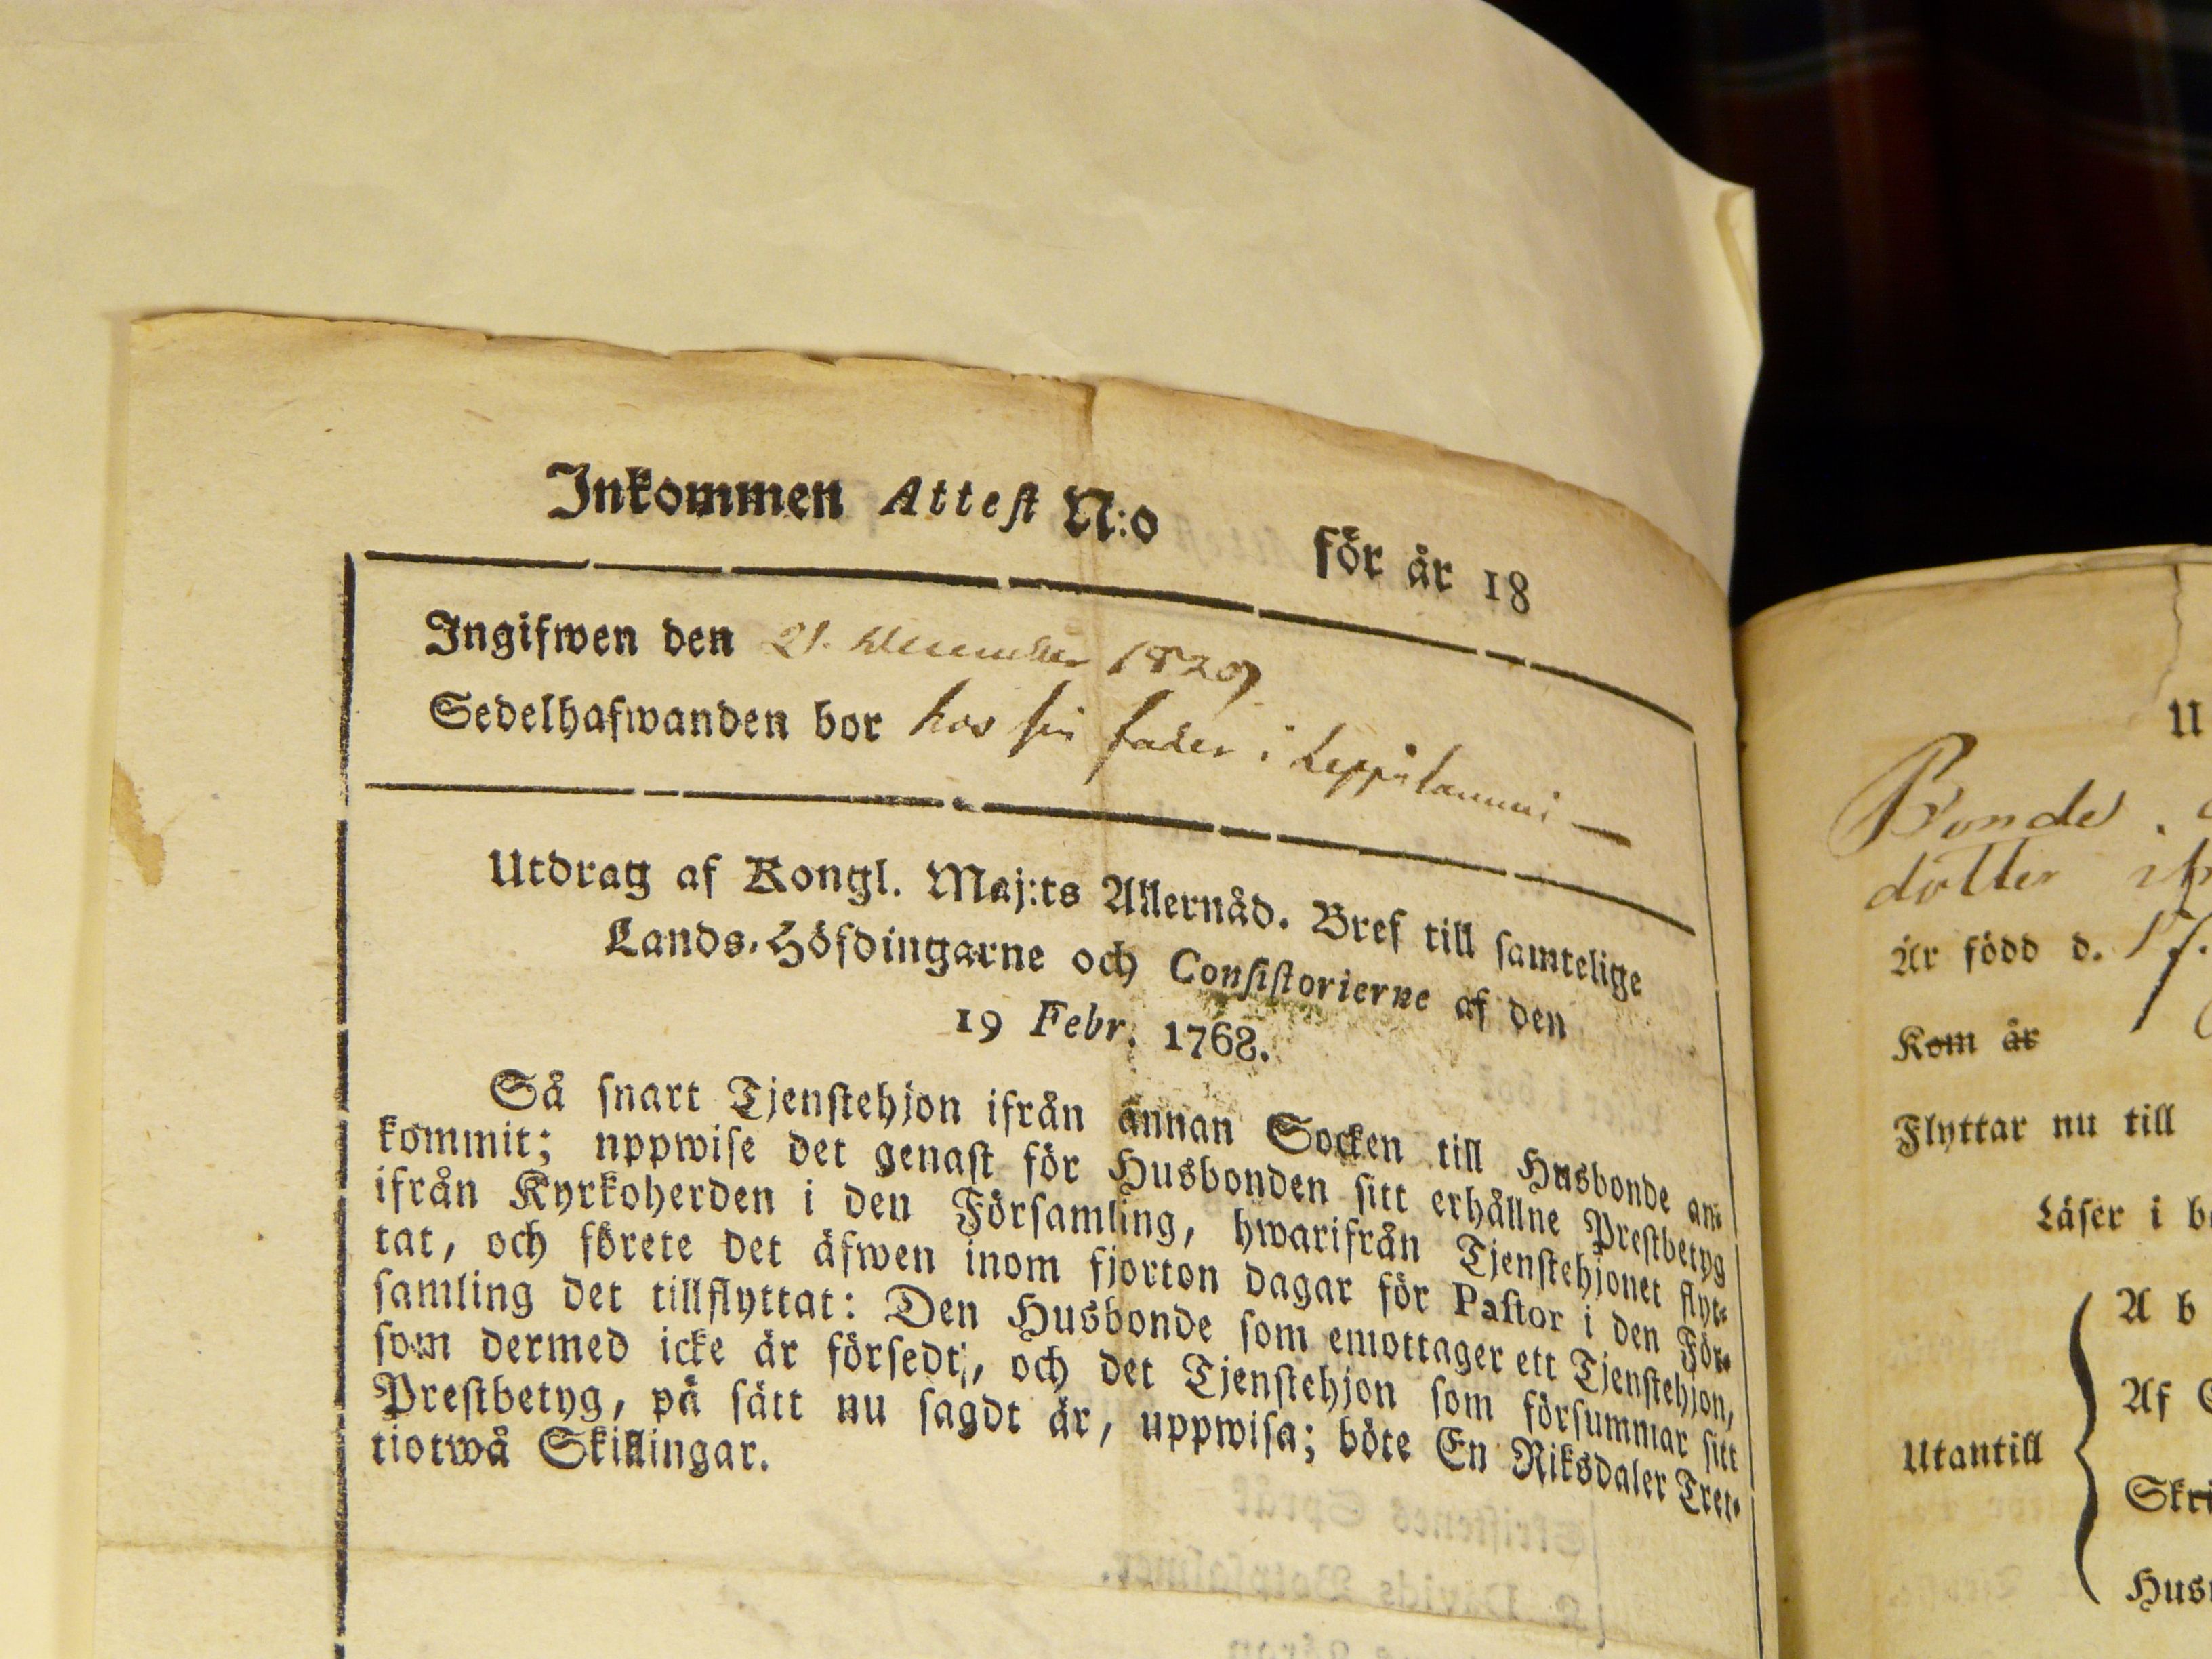 Inkommen Attest N:o för år 18
Ingifwen den 21. December 1829
Sedelhafwanden bor hos sin fader i Leppilammi —
Utdrag af Kongl. Maj:ts Allernåd. Bref till samtelige
Lands-Höfdingarne och Consistorierne af den
19 Febr. 1768.
Så snart Tjenstehjon ifrån annan Socken till Husbonde an-
kommit; uppwise det genast för Husbonden sitt erhållne Prestbetyg
ifrån Kyrkoherden i den Församling, hwarifrån Tjenstehjonet flyt-
tat, och förete det äfwen inom fjorton dagar för Pastor i den För-
samling det tillflyttat: Den Husbonde som emottager ett Tjenstehjon,
som dermed icke är försedt, och det Tjenstehjon som försummar sitt
Prestbetyg, på sätt nu sagdt är, uppwisa; böte En Riksdaler Tret-
tiotwå Skillingar.
U
Bonde
dotter
Är född d. 17.
Kom år
Flyttar nu till
Läser i b
Utantill
A b
Af
Skri
Hus